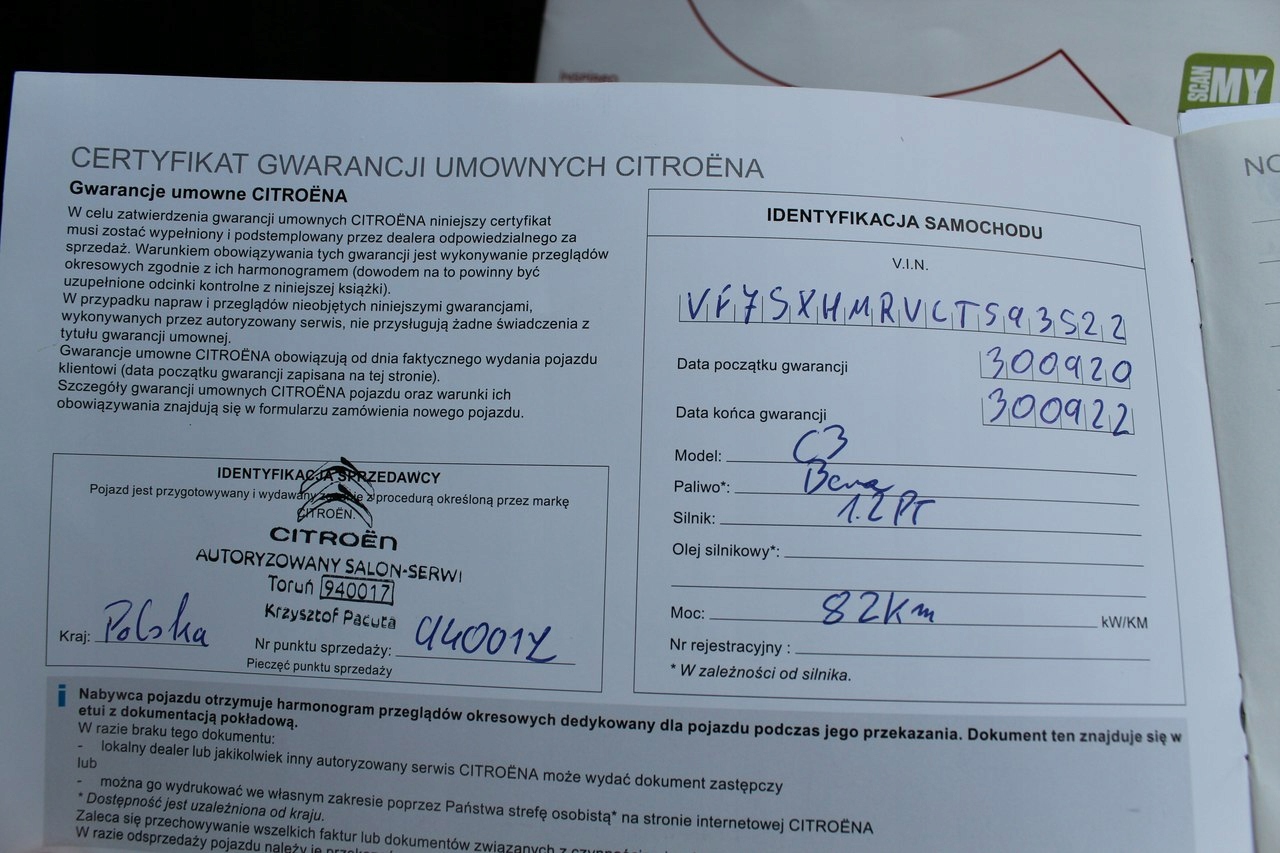 SCAN MY
CERTYFIKAT GWARANCJI UMOWNYCH CITROËNA
Gwarancje umowne CITROËNA
W celu zatwierdzenia gwarancji umownych CITROËNA niniejszy certyfikat
musi zostać wypełniony i podstemplowany przez dealera odpowiedzialnego za
sprzedaż. Warunkiem obowiązywania tych gwarancji jest wykonywanie przeglądów
okresowych zgodnie z ich harmonogramem (dowodem na to powinny być
uzupełnione odcinki kontrolne z niniejszej książki).
W przypadku napraw i przeglądów nieobjętych niniejszymi gwarancjami,
wykonywanych przez autoryzowany serwis, nie przysługują żadne świadczenia z
tytułu gwarancji umownej.
Gwarancje umowne CITROËNA obowiązują od dnia faktycznego wydania pojazdu
klientowi (data początku gwarancji zapisana na tej stronie).
Szczegóły gwarancji umownych CITROËNA pojazdu oraz warunki ich
obowiązywania znajdują się w formularzu zamówienia nowego pojazdu.
IDENTYFIKACJA SPRZEDAWCY
Pojazd jest przygotowywany i wydawany zgodnie z procedurą określoną przez markę
CITROËN.
CITROËN
AUTORYZOWANY SALON-SERWI
Toruń 940017
Krzysztof Pacuta
Kraj: Polska
Nr punktu sprzedaży: 940017
Pieczęć punktu sprzedaży
IDENTYFIKACJA SAMOCHODU
V.I.N.
VF7SXHMRVLTS93522
Data początku gwarancji 300920
Data końca gwarancji 300922
Model: C3
Paliwo*:
Silnik: 1.2 PT
Olej silnikowy*:
Moc: 82Km kW/KM
Nr rejestracyjny :
* W zależności od silnika.
i Nabywca pojazdu otrzymuje harmonogram przeglądów okresowych dedykowany dla pojazdu podczas jego przekazania. Dokument ten znajduje się w
etui z dokumentacją pokładową.
W razie braku tego dokumentu:
- lokalny dealer lub jakikolwiek inny autoryzowany serwis CITROËNA może wydać dokument zastępczy
lub
- można go wydrukować we własnym zakresie poprzez Państwa strefę osobistą* na stronie internetowej CITROËNA
* Dostępność jest uzależniona od kraju.
Zaleca się przechowywanie wszelkich faktur lub dokumentów związanych z
W razie odsprzedaży pojazdu należy je